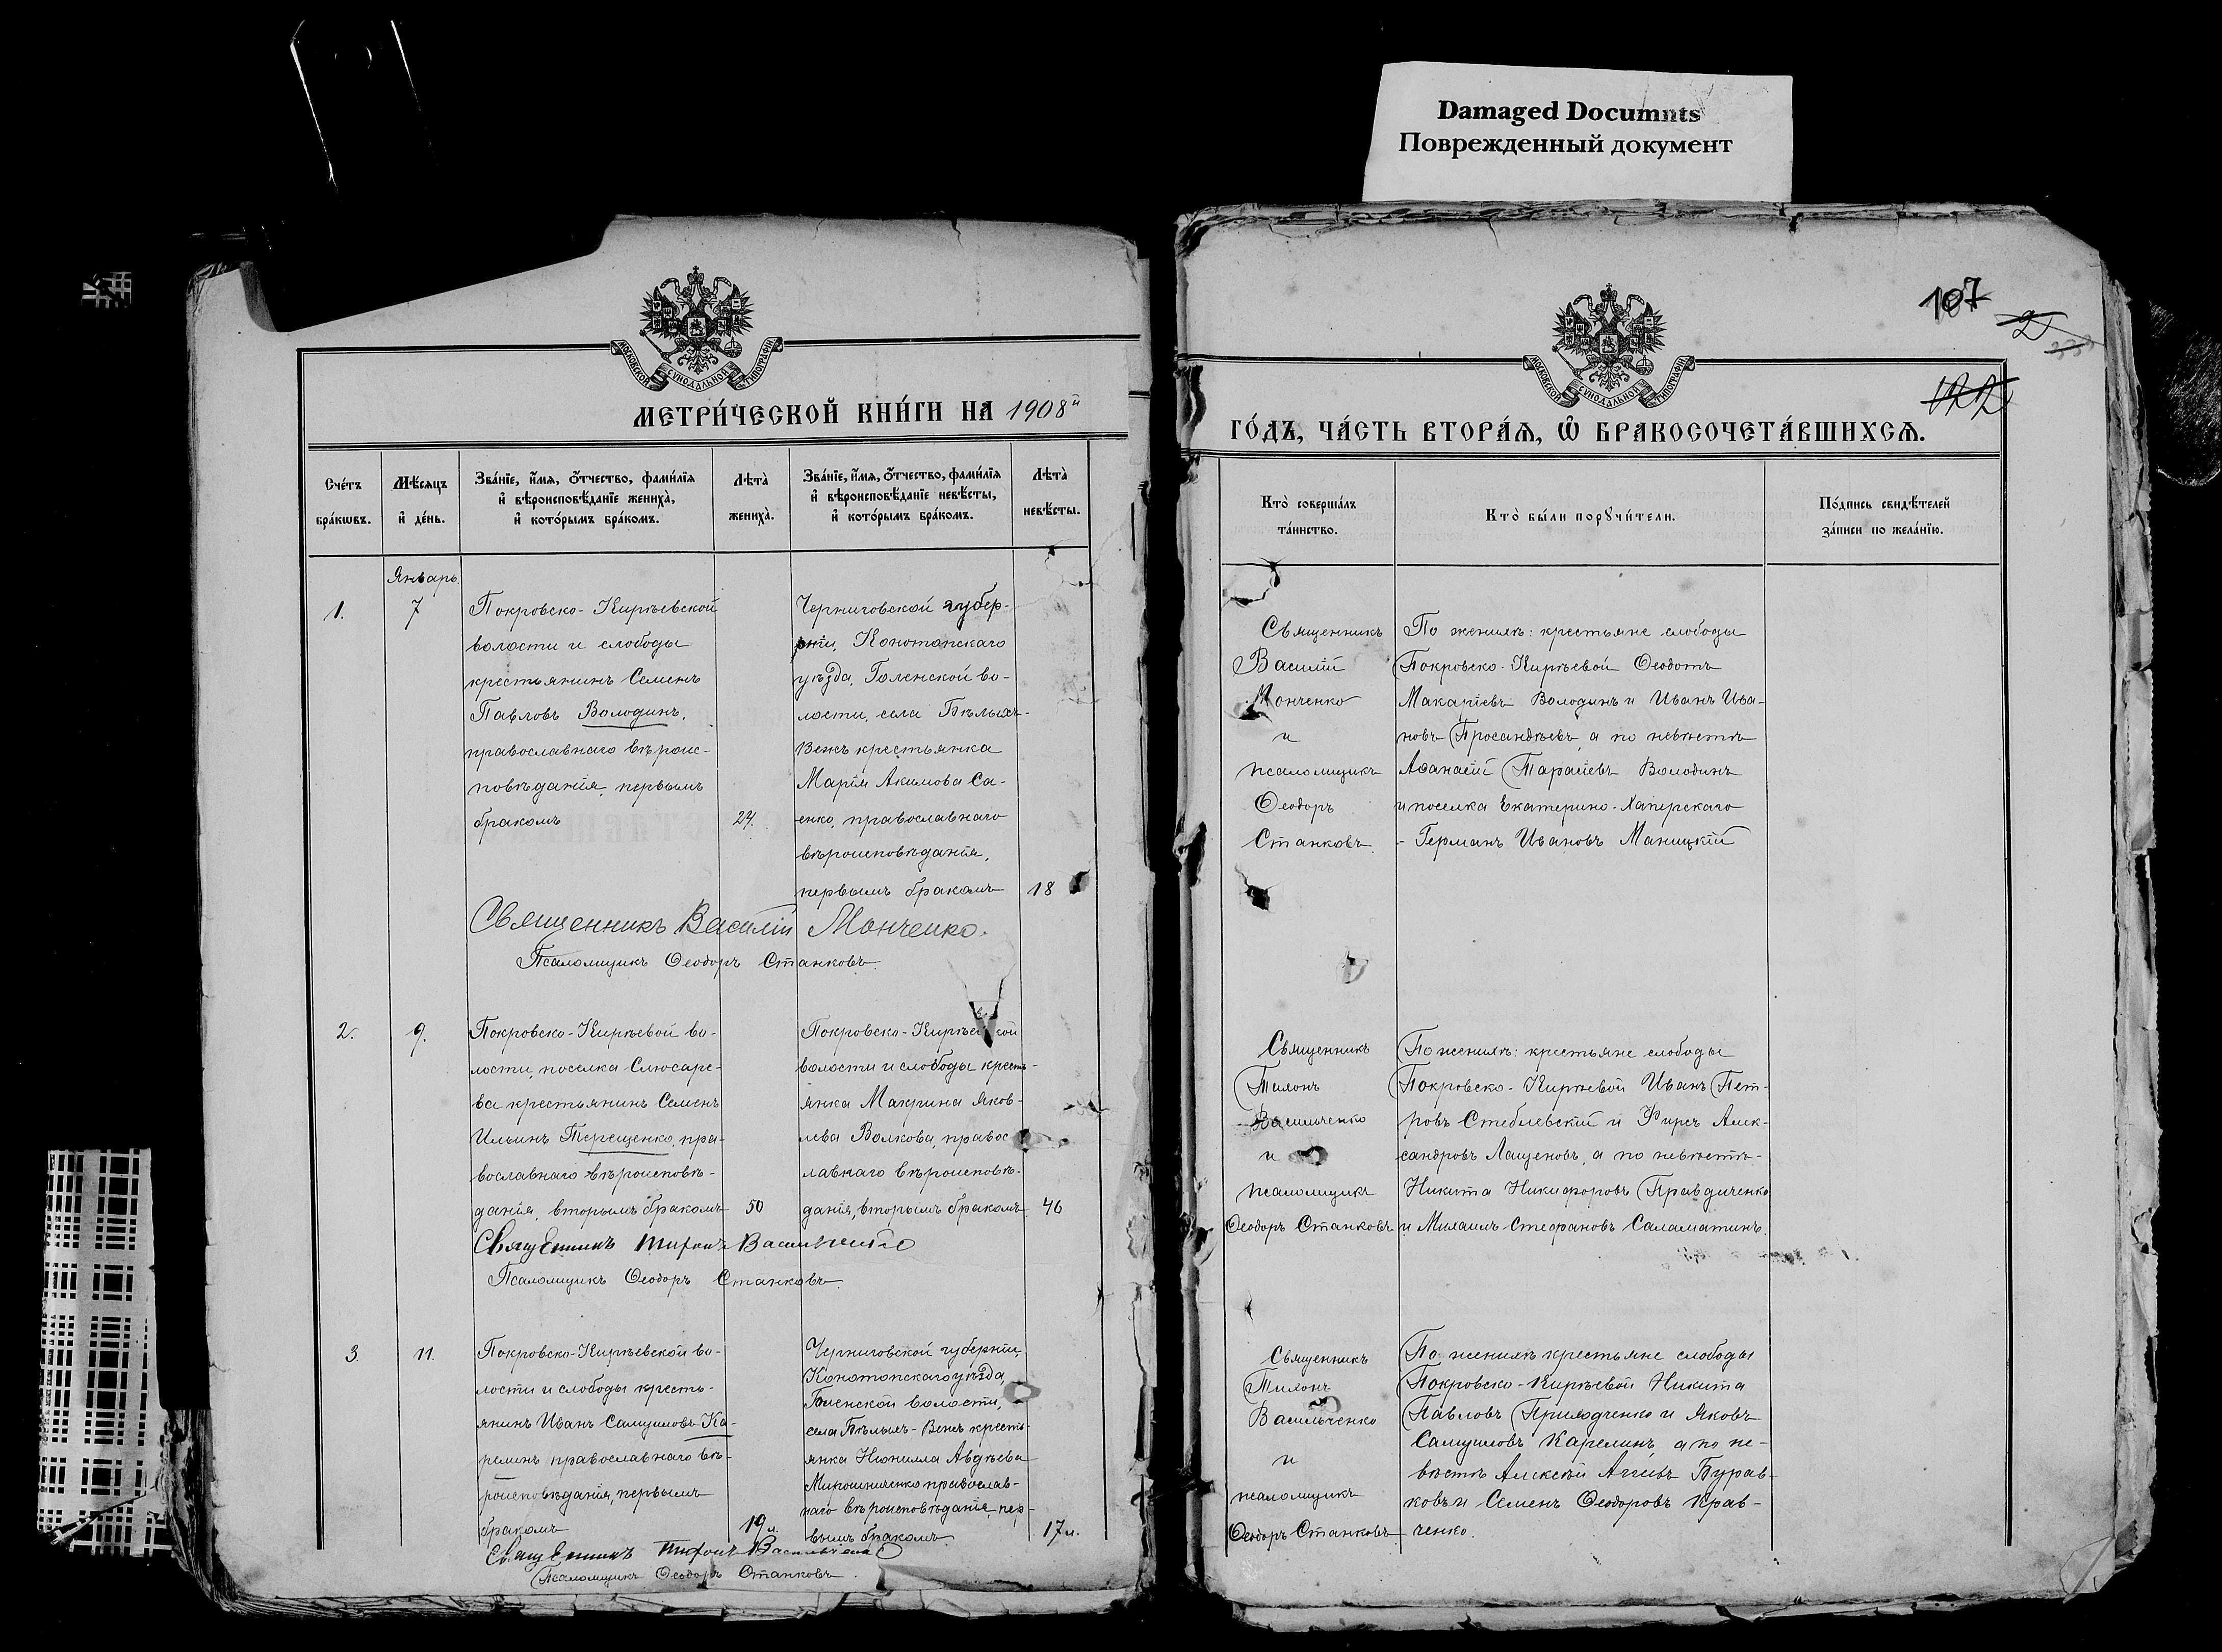 Damaged Documnts
Поврежденный документ
МОСКОВСКОЙ СУНОДАЛЬНОЙ ТИПОГРАФІИ
МЕТРИ́ЧЕСКОЙ КНИ́ГИ НА 1908й
Сче́тъ бра́кѡвъ.
Мѣ́сяцъ и҆ де́нь.
Зва́нїе, и҆́мя, ѻ҆́тчество, фами́лїя
и҆ вѣроисповѣ́данїе жениха̀,
и҆ кото́рымъ бра́комъ.
Лѣта̀ жениха̀.
Зва́нїе, и҆́мя, ѻ҆́тчество, фами́лїя
и҆ вѣроисповѣ́данїе невѣ́сты,
и҆ кото́рымъ бра́комъ.
Лѣта̀ невѣ́сты.
Январь.
1.
7
Покровско-Кирѣевской
волости и слободы
крестьянинъ Семенъ
Павловъ Володинъ,
православнаго вѣроис-
повѣданія, первымъ
бракомъ
24.
Черниговской губер-
ніи, Конотопскаго
уѣзда, Голенской во-
лости, села Бѣлыхъ-
Вежъ крестьянка
Марія Акимова Са-
енко, православнаго
вѣроисповѣданія,
первымъ бракомъ
18
Священникъ Василій Монченко.
Псаломщикъ Ѳеодоръ Станковъ.
2.
9.
Покровско-Кирѣевой во-
лости, поселка Слюсаре-
ва крестьянинъ Семенъ
Ильинъ Терещенко, пра-
вославнаго вѣроисповѣ-
данія, вторымъ бракомъ
50
Покровско-Кирѣевской
волости и слободы кресть-
янка Макрина Яков-
лева Волкова, правос
лавнаго вѣроисповѣ-
данія, вторымъ бракомъ
46
Священникъ Тихонъ Васильченко
Псаломщикъ Ѳеодоръ Станковъ.
3.
11.
Покровско-Кирѣевской во-
лости и слободы кресть-
янинъ Иванъ Самуиловъ Ка-
релинъ православнаго вѣ-
роисповѣданія, первымъ
бракомъ
19 л.
Черниговской губерніи,
Конотопскаго уѣзда,
Голенской волости,
села Бѣлыхъ-Вежъ кресть
янка Неонилла Авдѣева
Мирошниченко православ-
наго вѣроисповѣданія, пер-
вымъ бракомъ.
17 л.
Священникъ Тихонъ Васильченко
Псаломщикъ Ѳеодоръ Станковъ.
107
2
122
МОСКОВСКОЙ СУНОДАЛЬНОЙ ТИПОГРАФІИ
ГО́ДЪ, ЧА́СТЬ ВТОРА́Я, Ѡ҆ БРАКОСОЧЕТА́ВШИХСЯ.
Кто̀ соверша́лъ
та́инство.
Кто̀ бы́ли порꙋчи́тели.
По́дпись свидѣ́телей
за́писи по жела́нїю.
Священникъ
Василій
Монченко
и
псаломщикъ
Ѳеодоръ
Станковъ.
По женихѣ: крестьяне слободы
Покровско-Кирѣевой Ѳеодотъ
Макаріевъ Володинъ и Иванъ Ива-
новъ Просандѣевъ, а по невѣстѣ
Аѳанасій Тарасіевъ Володинъ
и поселка Екатерино-Хаперскаго
- Германъ Ивановъ Маницкій
Священникъ
Тихонъ
Васильченко
и
псаломщикъ
Ѳеодоръ Станковъ
По женихѣ: крестьяне слободы
Покровско-Кирѣевой Иванъ Пет-
ровъ Стеблевскій и Фирсъ Алек-
сандровъ Лащеновъ, а по невѣстѣ-
Никита Никифоровъ Правдиченко
и Михаилъ Стефановъ Саламатинъ.
Священникъ
Тихонъ
Васильченко
и
псаломщикъ
Ѳеодоръ Станковъ
По женихѣ крестьяне слободы
Покровско-Кирѣевой Никита
Павловъ Приходченко и Яковъ
Самуиловъ Карелинъ, а по не-
вѣстѣ Алексѣй Агѣевъ Бурав-
ковъ и Семенъ Ѳеодоровъ Крав-
ченко.